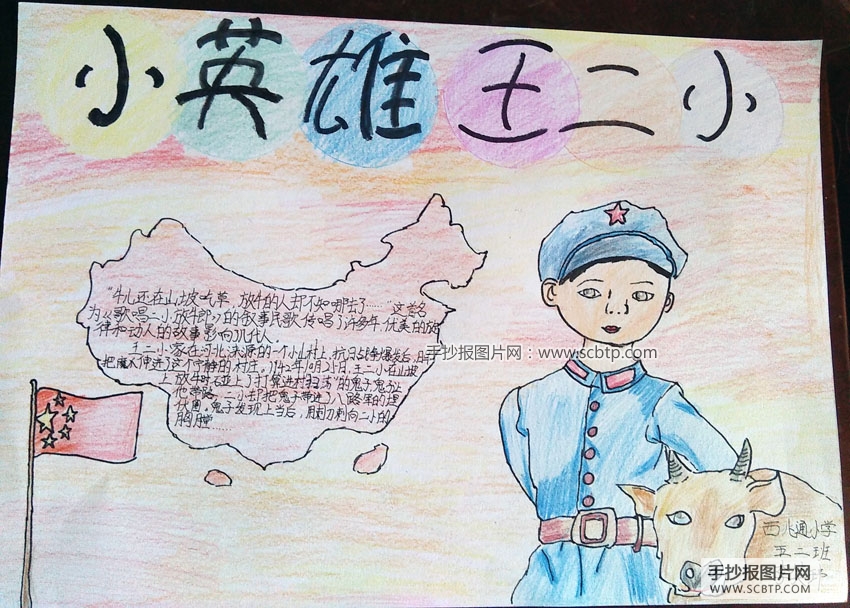 小英雄王二小
“牛儿还在山坡吃草，放牛的人却不知哪去了……”这首名
为《歌唱二小放牛郎》的叙事民歌，传唱了许多年，优美的旋
律和动人的故事影响几代人。
王二小家在河北涞源的一个小山村上，抗日战争爆发后，日
把魔爪伸进了这个宁静的村庄。1942年10月25日，王二小在山坡
上放牛时碰上了打算进村扫荡”的鬼子，鬼子让
他带路，二小却把鬼子带进了八路军的埋
伏圈。鬼子发现上当后，用刺刀刺向二小的
胸膛……
手抄报图片网：www.scbtp.com
西小通小学
五二班
手抄报图片网
WWW.SCBTP.COM